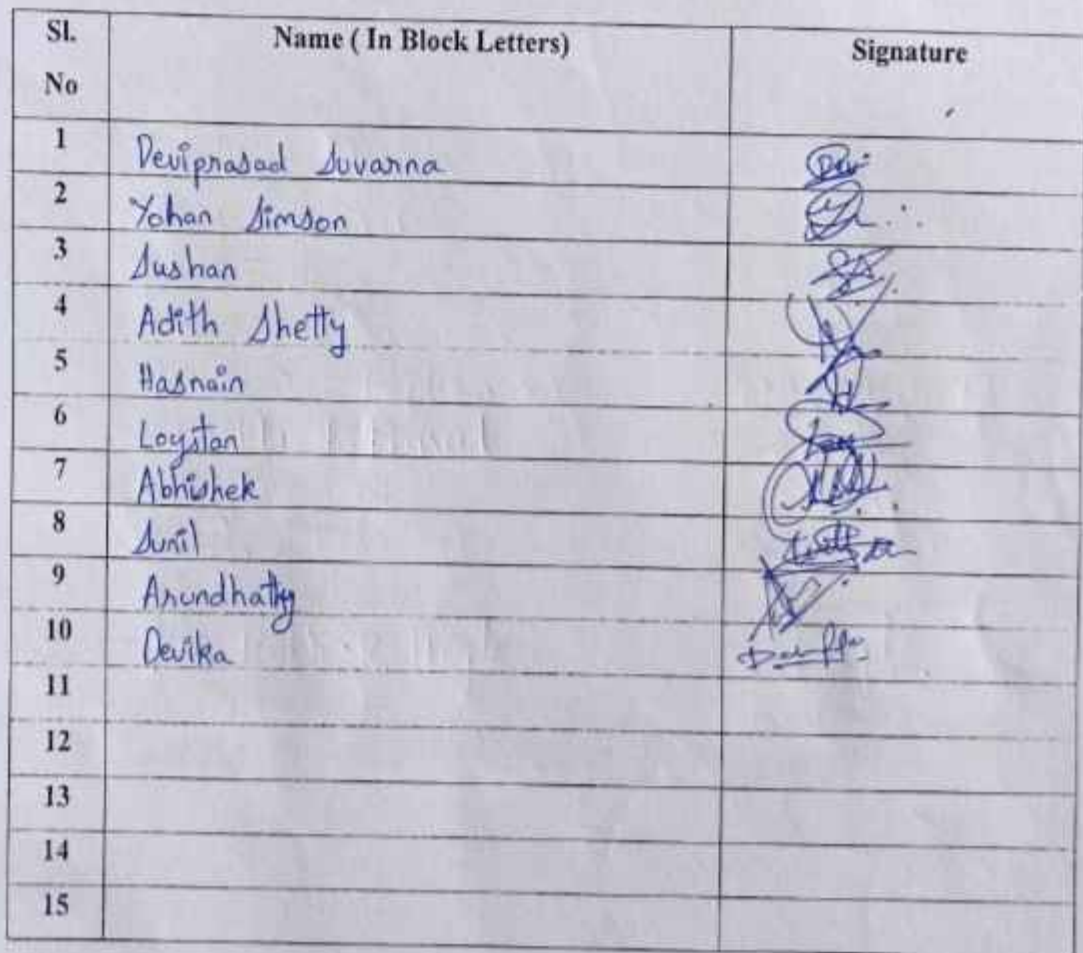 Sl. No Name ( In Block Letters) Signature
1 Deviprasad Suvarna Devi
2 Yohan Simson
3 Sushan
4 Adith Shetty
5 Hasnain
6 Loyston
7 Abhishek
8 Sunil
9 Arundhathy
10 Devika
11
12
13
14
15